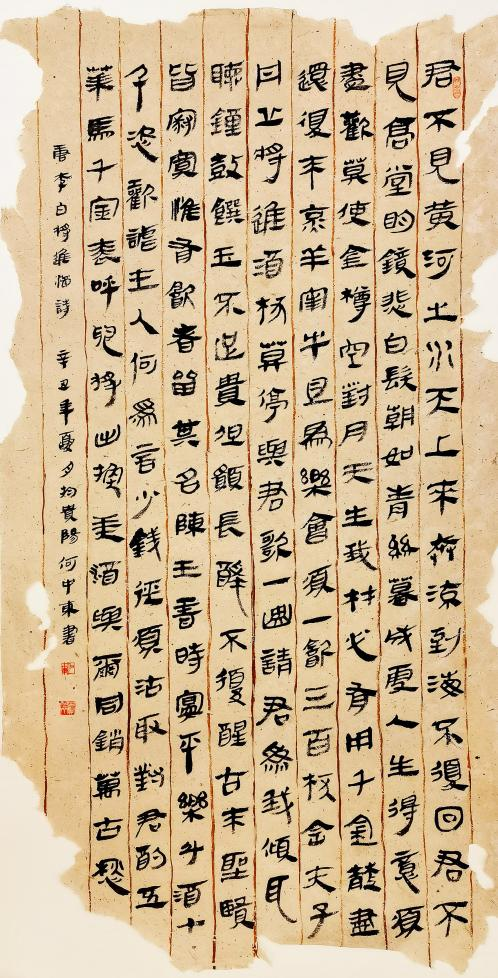 君不見黃河之水天上來奔流到海不復回君不
見高堂明鏡悲白髮朝如青絲暮成雪人生得意須
盡歡莫使金樽空對月天生我材必有用千金散盡
還復來烹羊宰牛且為樂會須一飲三百杯岑夫子
丹丘將進酒杯莫停與君歌一曲請君為我傾耳
聽鍾鼓饌玉不足貴但願長醉不復醒古來聖賢
皆寂寞惟有飲者留其名陳王昔時宴平樂斗酒十
千恣歡謔主人何為言少錢徑須沽取對君酌五
華馬千金裘呼兒將出換美酒與爾同銷萬古愁
唐李白將進酒詩 辛丑年夏月於貴陽何中東書